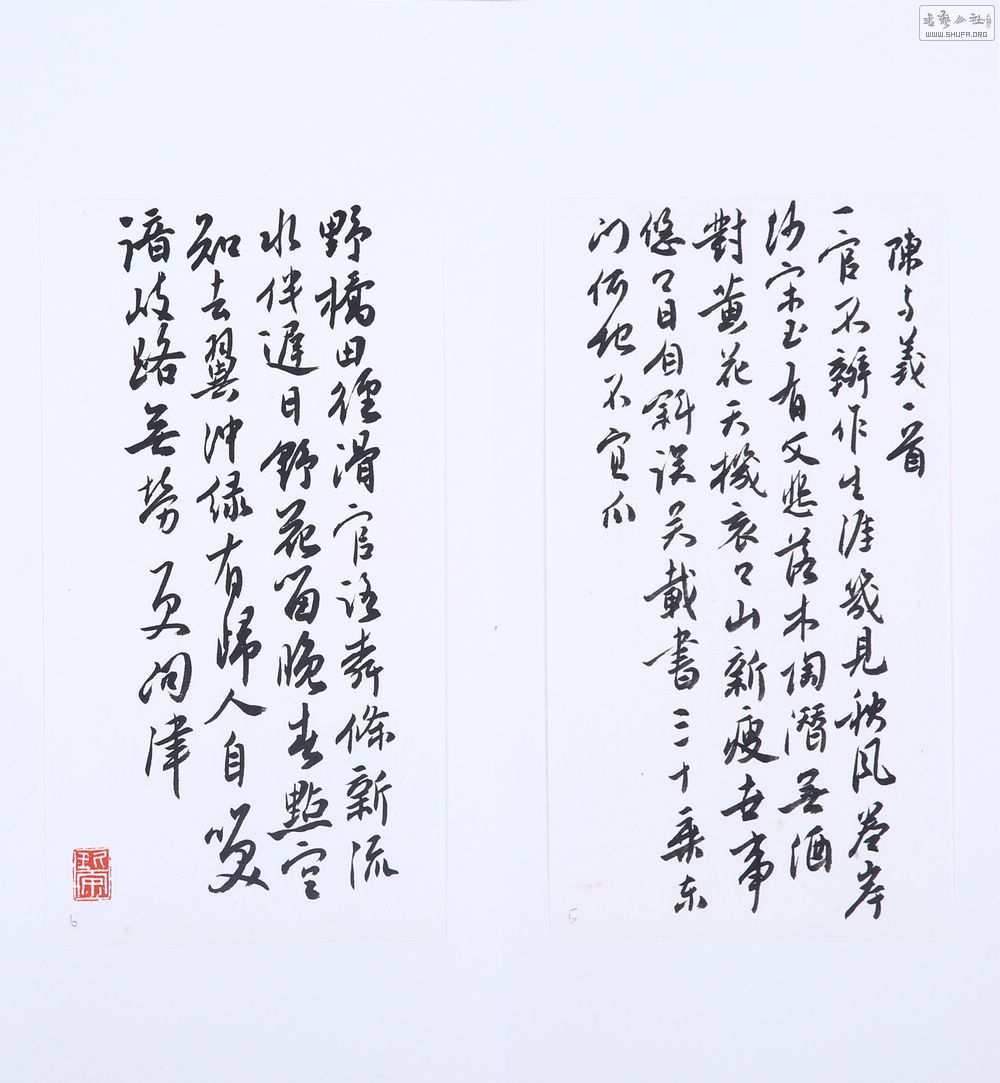 書藝公社
WWW.SHUFA.ORG
陳与義一首
一官不辦作生涯幾見秋風卷岸
沙宋玉有文悲落木陶潛無酒
對黃花天機衮々山新瘦世事
悠々日自斜误矣載書三十乘东
门何地不宜瓜
5
野橋田徑滑官條新流
水伴遲日野花留晚春點空
知去翼沖绿有歸人自笑
諳歧路無勞更問津
6